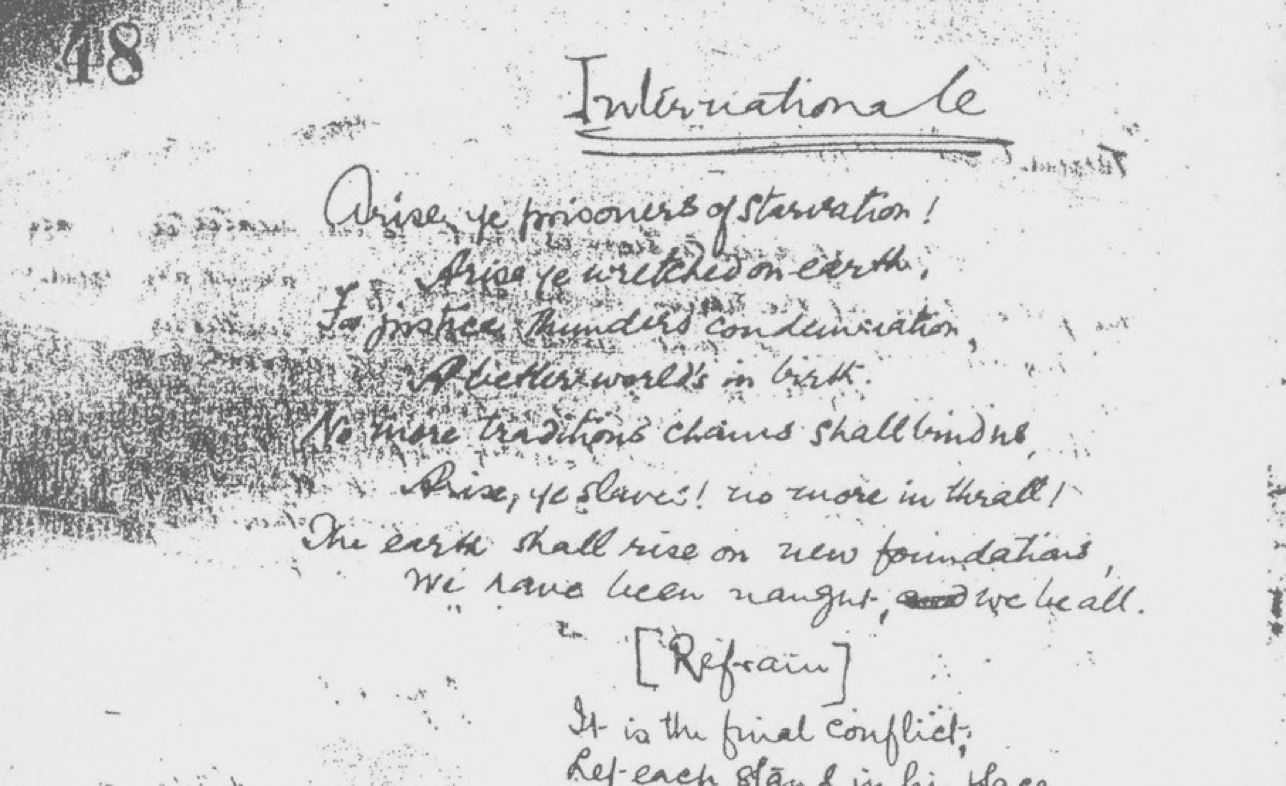 48
Internationale
Arise, ye prisoners of starvation!
Arise ye wretched on earth,
For justice thunders condemnation,
A better world's in birth.
No more traditions chains shall bind us,
Arise, ye slaves! no more in thrall!
The earth shall rise on new foundations,
We have been naught, we be all.
[Refrain]
It is the final conflict;
Let each stand in his place